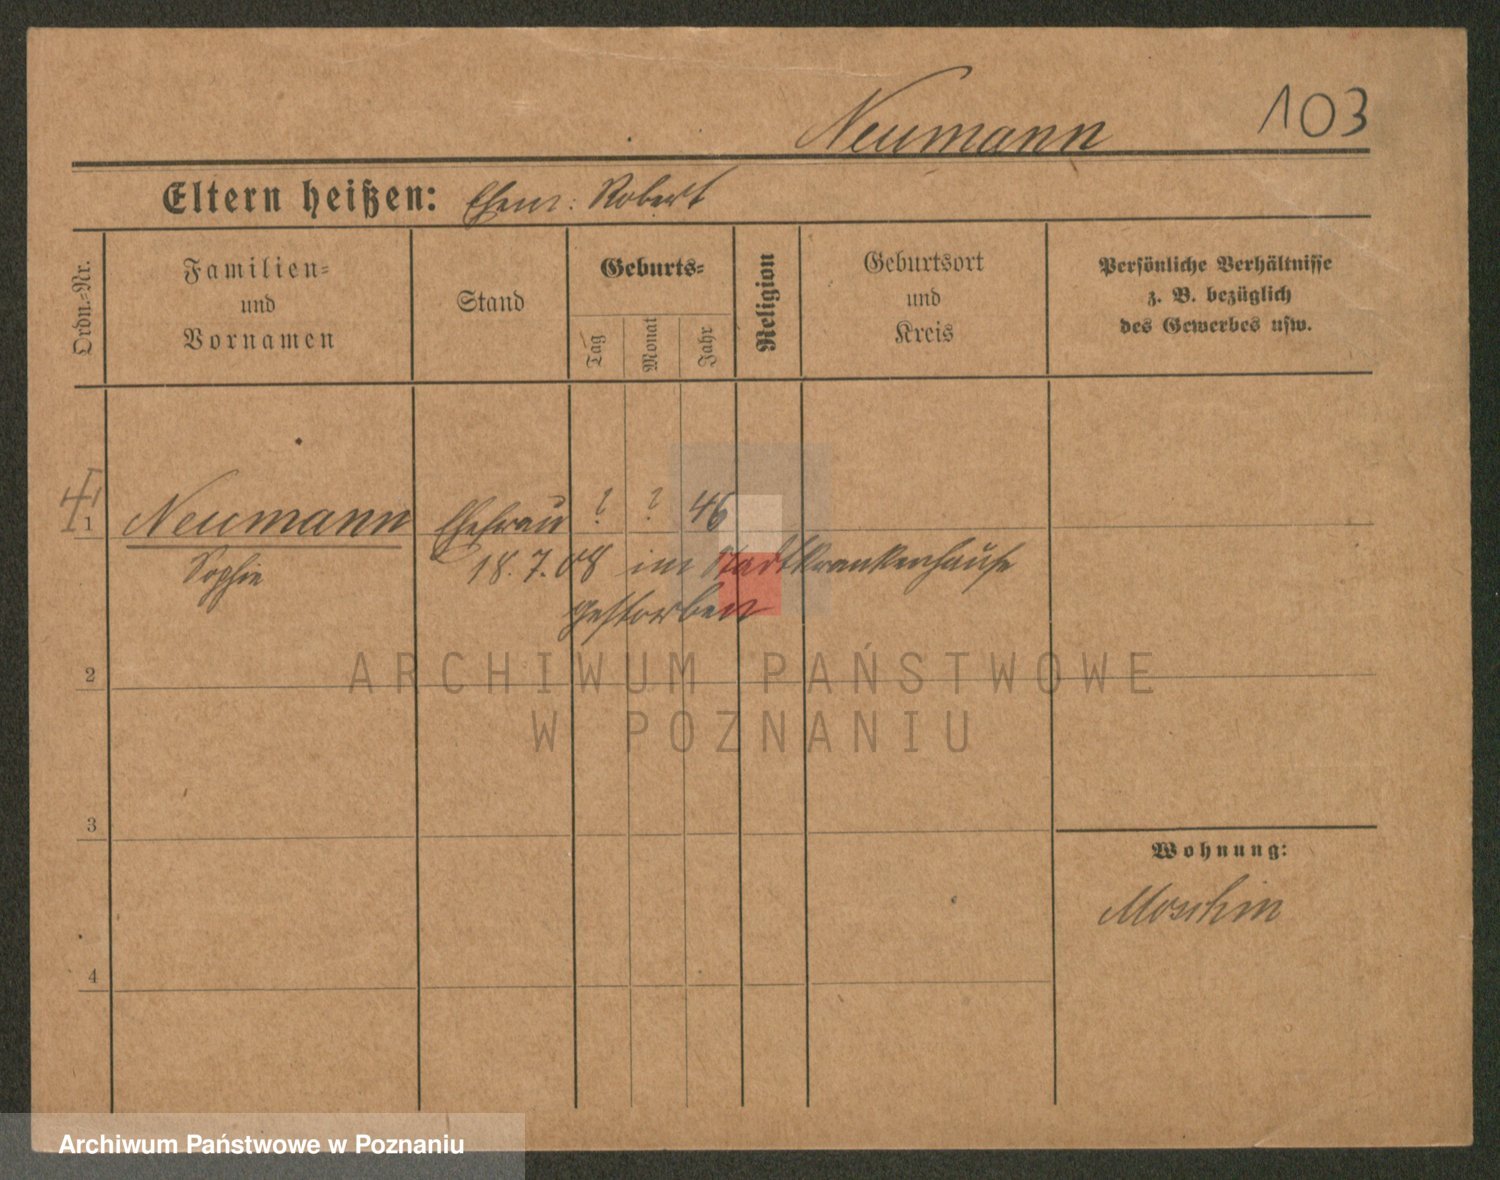 Neumann 103
Eltern heißen: Ehem: Robert
Ordn.-Nr.
Familien-
und
Vornamen
Stand
Geburts-
Tag
Monat
Jahr
Religion
Geburtsort
und
Kreis
Persönliche Verhältnisse
z. B. bezüglich
des Gewerbes usw.
1 Neumann Ehefrau ? ? 46
Sophie 18.7.08 im Stadtkrankenhause
gestorben
ARCHIWUM PAŃSTWOWE
W POZNANIU
2
3
Wohnung:
Moschin
4
Archiwum Państwowe w Poznaniu